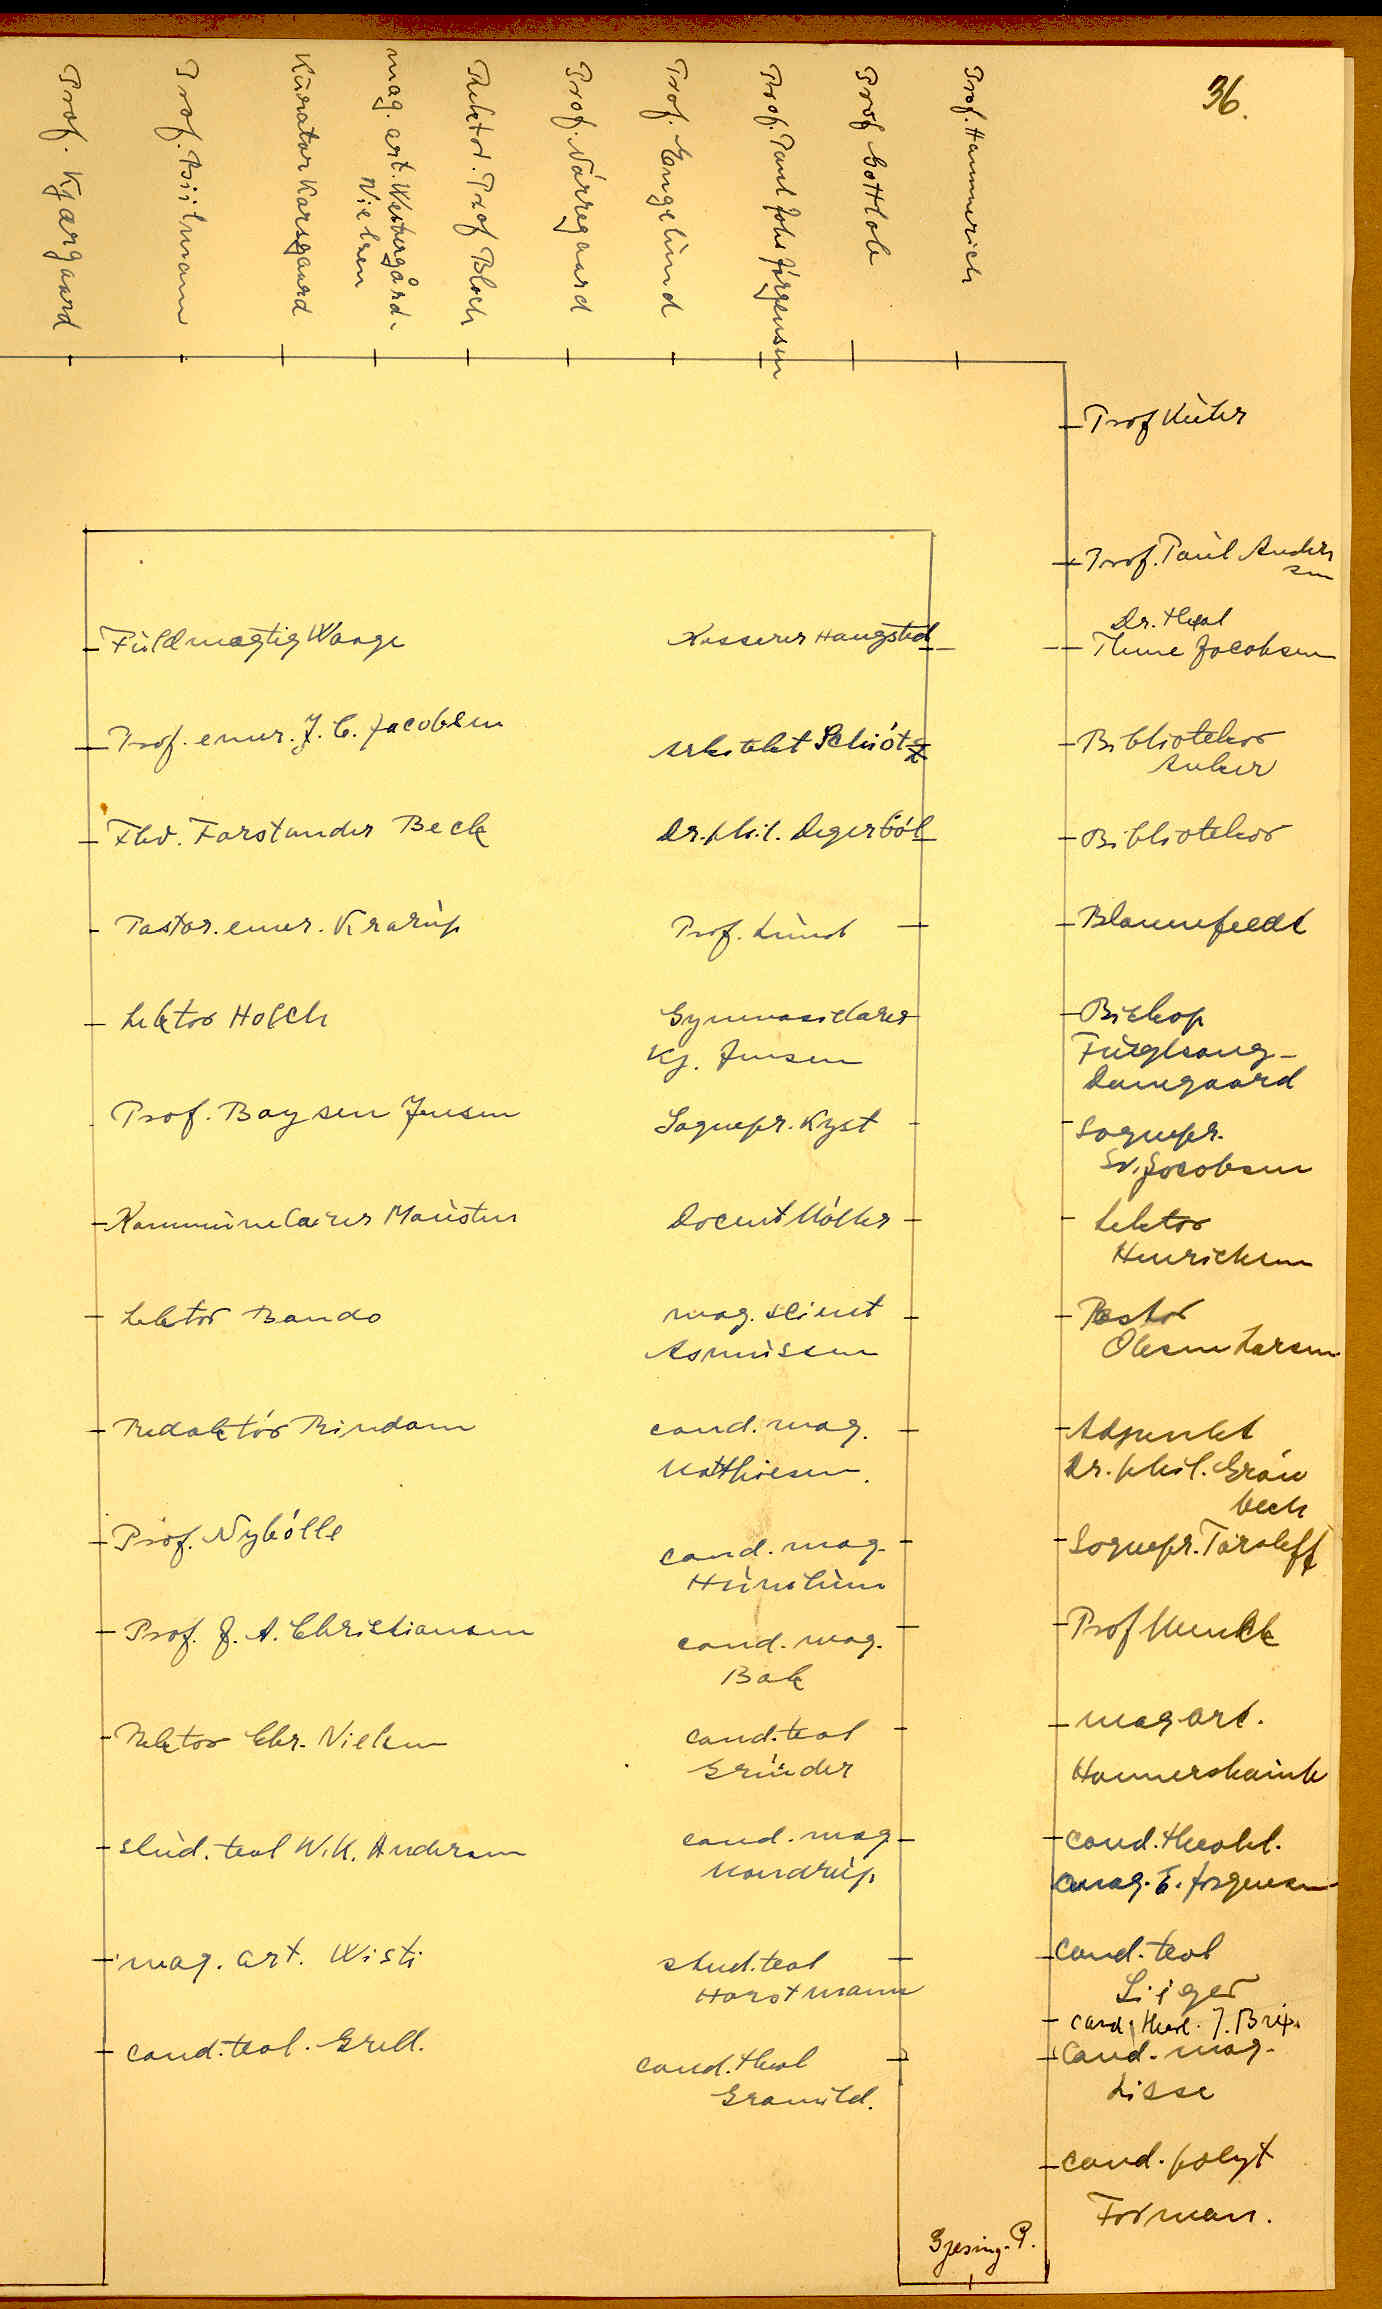 36.
Prof. Kjærgaard
Prof. Biilmann
Kurator Korsgaard
mag. art. Westergård-
Nielsen
Rektor. Prof Bloch
Prof. Nörregaard
Prof. Engelund
Prof. Paul Johs Jörgensen
Prof Gottlob
Prof. Hammerich
Prof Kühr
Prof. Paul Ander
sen
Dr. theol
Thune Jacobsen
Bibliotekar
Anker
Bibliotekar
Blaunfeldt
Biskop
Fuglsang-
Damgaard
Sognepr.
Sv. Jacobsen
Lektor
Henrichsen
Pastor
Olesen Larsen
Adjunkt
Dr. phil. Grön
bech
Sognepr. Torsleff
Prof Munck
mag. art.
Hammershaimb
cand. theol.
mag. E. Jörgensen
cand. teol
cand. theol. J. Brix.
cand. mag.
Lisse
cand. polyt
Forman.
Fuldmægtig Waage
Prof. emer. J. C. Jacobsen
Fhv. Forstander Beck
Pastor. emer. Krarup
Lektor Holch
Prof. Boysen Jensen
Kommunelærer Mousten
Lektor Bando
Redaktör Rindom
Prof. Nybölle
Prof. J. A. Christiansen
Rektor Chr. Nielsen
stud. teol W. K. Andersen
mag. art. Wisti
cand. teol. Grell.
Kasserer Haugsted
Arkitekt Schiötz
Dr. phil. Degerböl
Prof. Lund
Gymnasielærer
Kj. Jensen
Sognepr. Kyst
Docent Möller
mag. scient
Asmussen
cand. mag.
Matthiesen.
cand. mag.
cand. mag.
Bak
cand. teol
Gründer
cand. mag
Mondrup
stud. teol
Horstmann
cand. theol
Granild.
Gjesing. P.